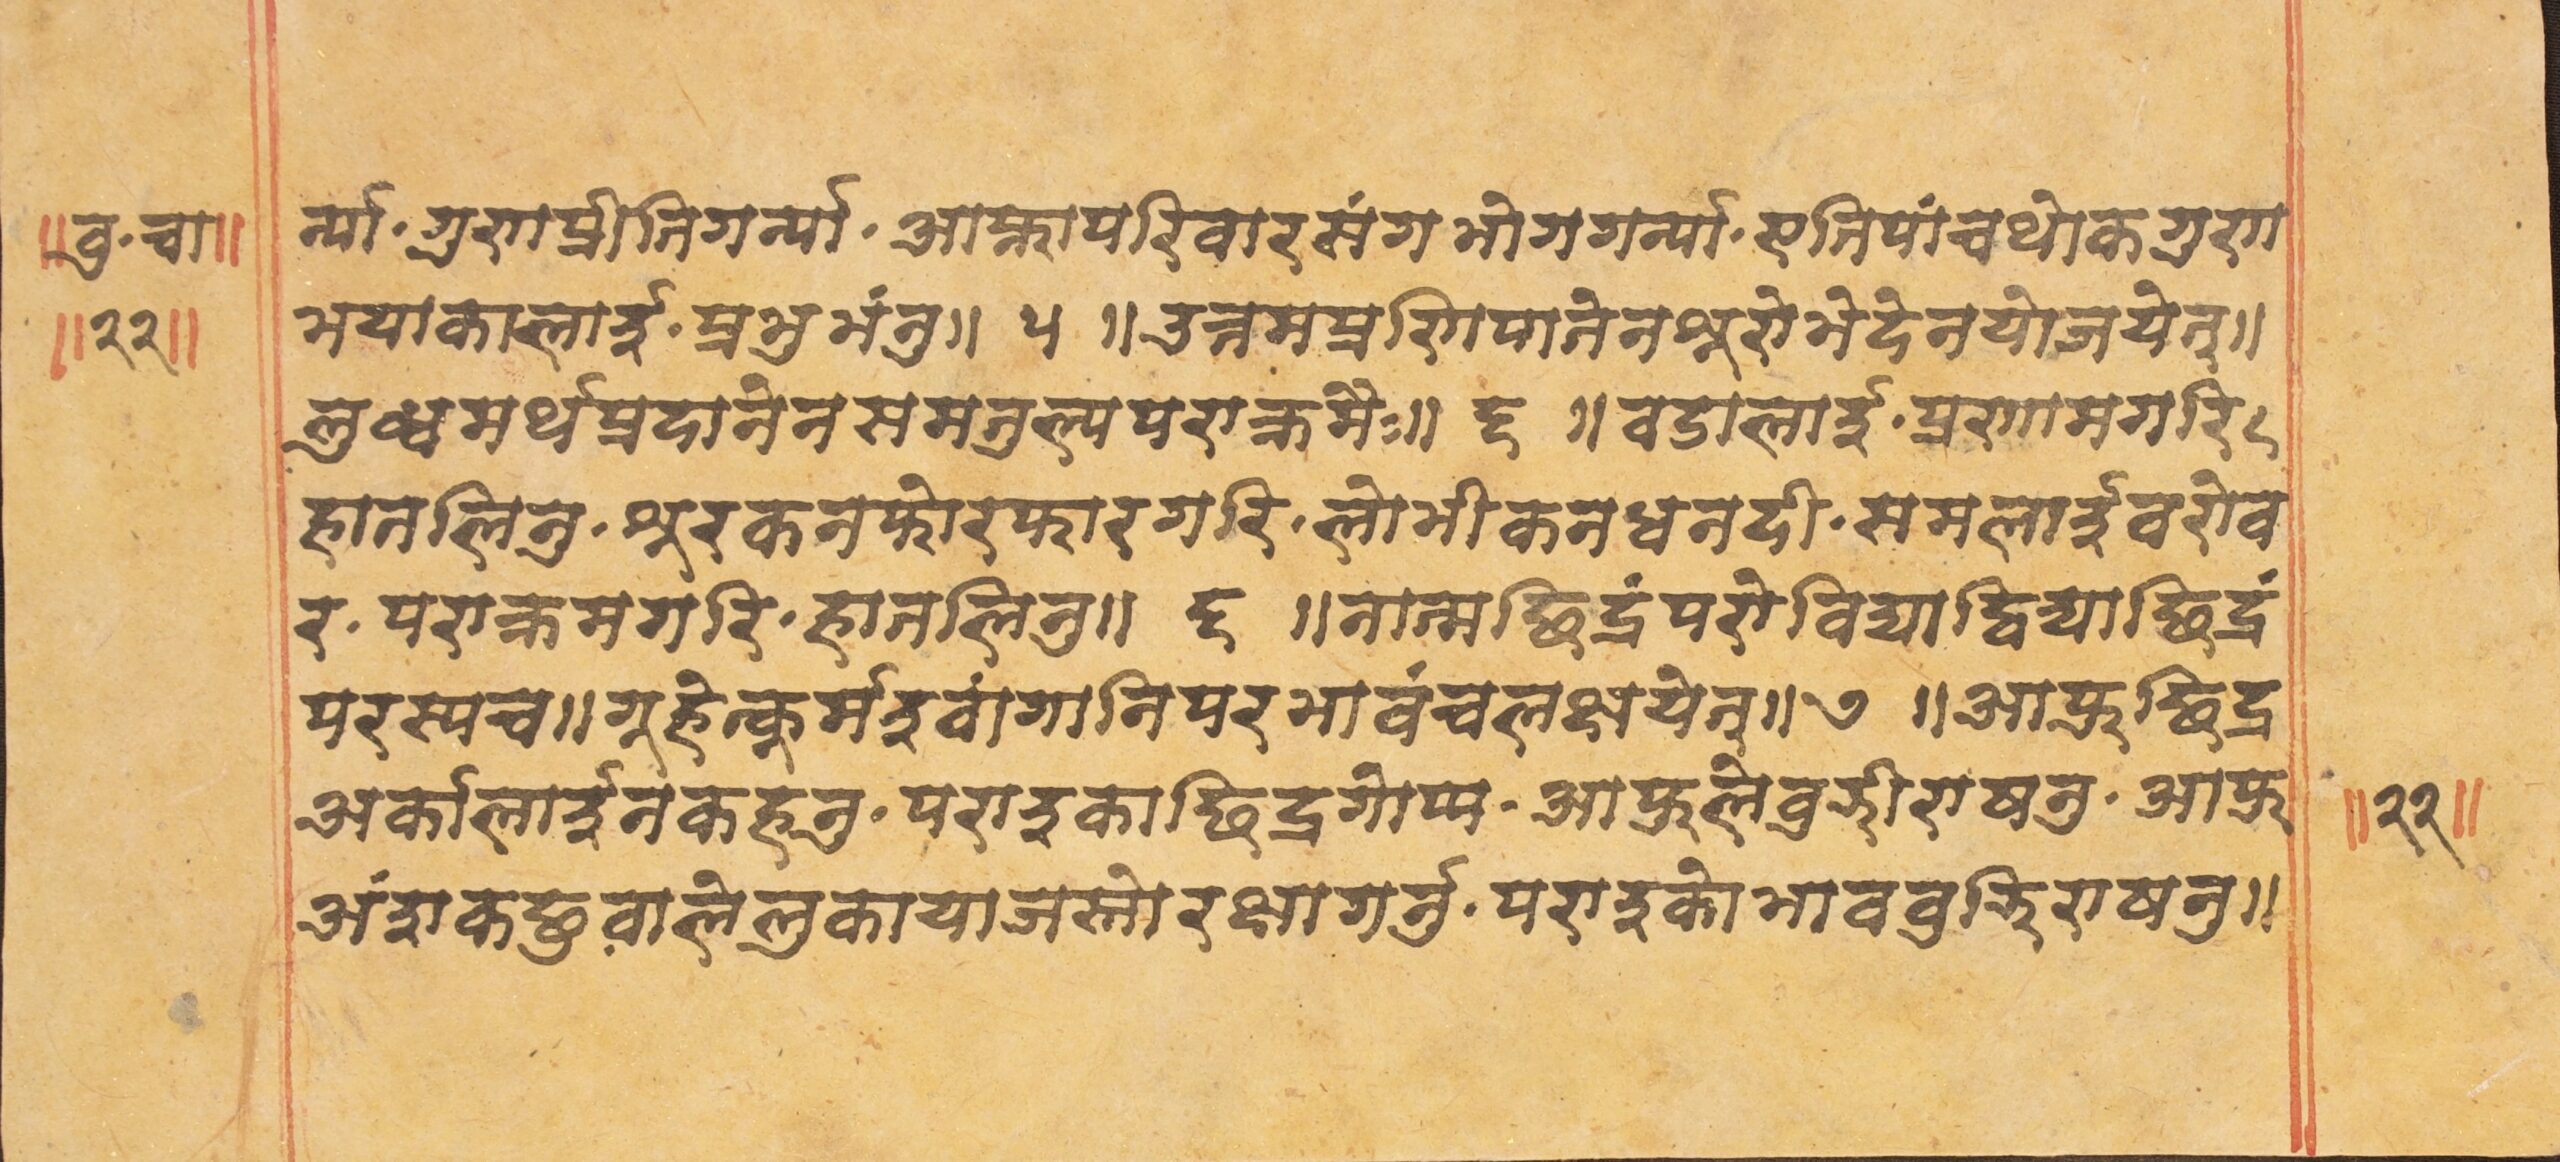 ॥वु·चा॥ र्न्या·गुणप्रीतिगर्न्या·आफ्नापरिवारसंगभोगगर्न्या·एतिपांचथोकगुण
॥२२॥ भयाकालाई·प्रभुभंनु॥ ५ ॥उत्तमप्रणिपातेनश्रूरोभेदेनयोजयेत्॥
लुब्धमर्थप्रदानेनसमतुल्यपराक्रमैः॥ ६ ॥वडालाई·प्रणामगरि
हातलिनु·श्रूरकनफोरफारगरि·लोभीकनधनदी·समलाईवरोव
र·पराक्रमगरि·हातलिनु॥ ६ ॥नात्मछिद्रंपरोविद्याद्विद्याछिद्रं
परस्यच॥गूहेत्कूर्मइवांगानिपरभावंचलक्षयेत्॥७ ॥आफ्रूछिद्र
अर्कालाईनकहनु·पराइकाछिद्रगोप्य·आफ्रूलेवुझीराषनु·आफ्रू
अंङाकछुवालेलुकायाजस्तोरक्षागर्नु·पराइकोभाववुझिराषनु॥
॥२२॥